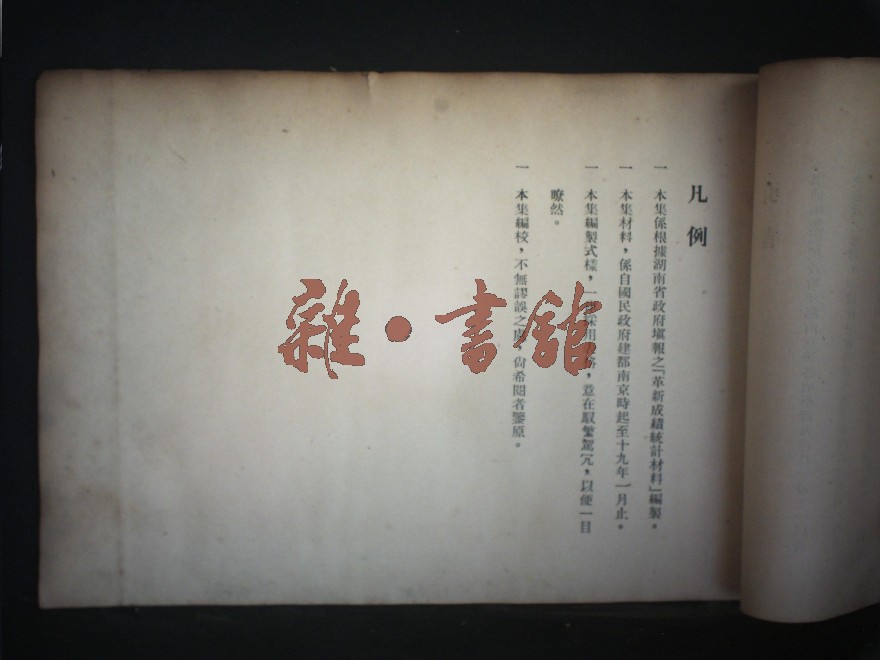 凡例
一 本集係根據湖南省政府塡報之「革新成績統計材料」編製。
一 本集材料，係自國民政府建都南京時起至十九年一月止。
一 本集編製式樣，一採用，意在馭繁駕冗，以便一目
瞭然。
一 本集編校，不無謬誤之處，尙希閱者鑒原。
雜·書館